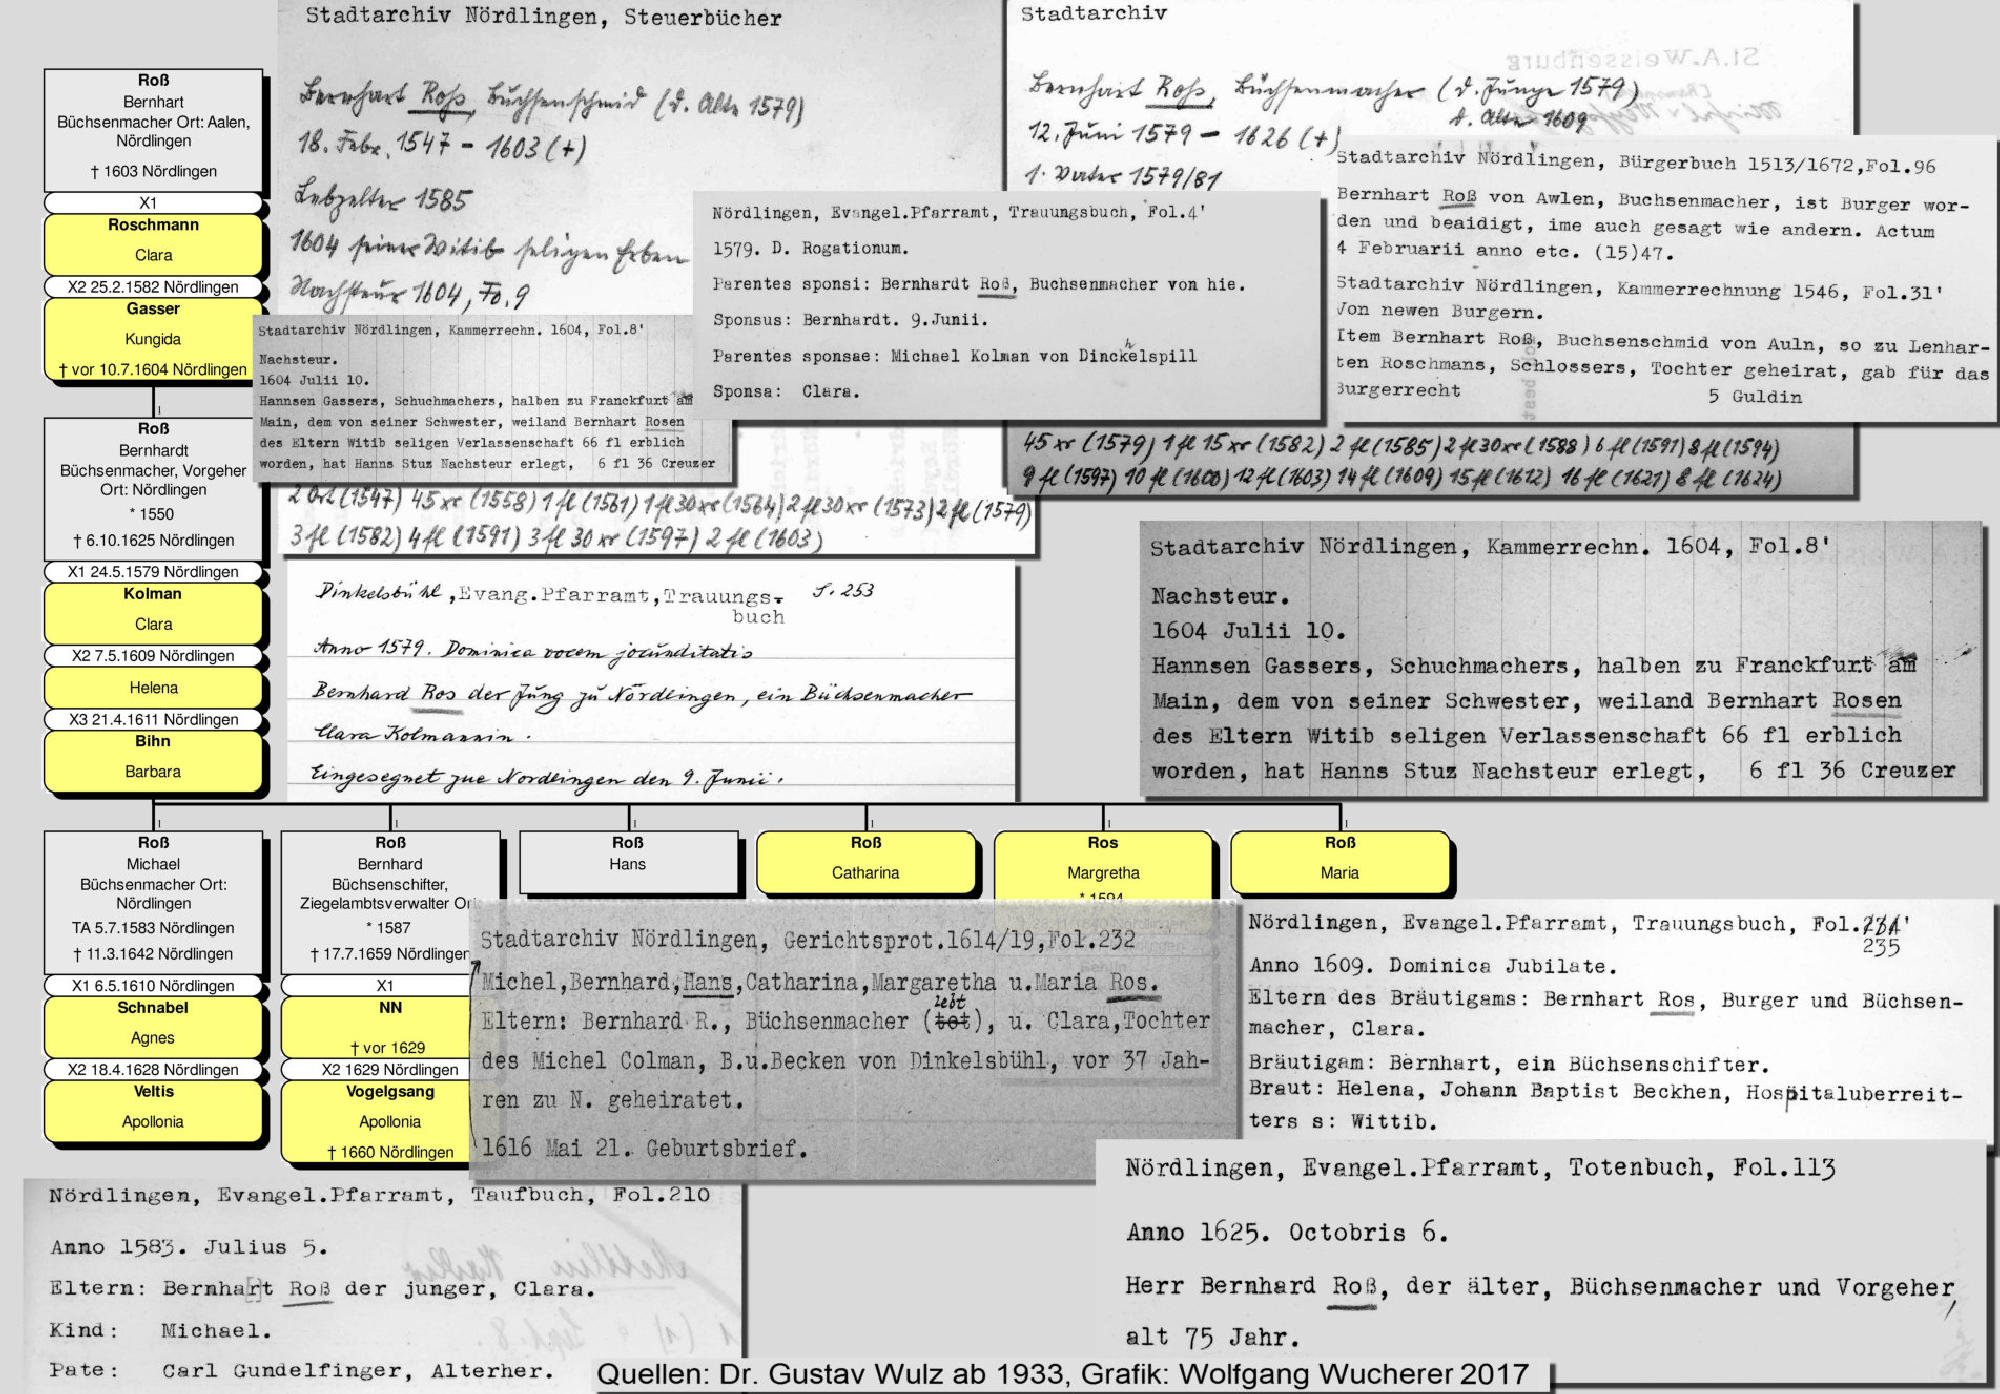 Stadtarchiv Nördlingen, Steuerbücher
Bernhart Roß, Büchsenschmid (d. Alte 1579)
18. Febr. 1547 - 1603 (+)
Lebzelter 1585
1604 seiner Witib seligen Erben
Nachsteur 1604, Fo. 9
2 Ort (1547) 45 xr (1558) 1 fl (1561) 1 fl 30 xr (1564) 2 fl 30 xr (1573) 2 fl (1579)
3 fl (1582) 4 fl (1591) 3 fl 30 xr (1597) 2 fl (1603)
Stadtarchiv
St.A.Weissenburg
Bernhart Roß, Büchsenmacher (d. Junge 1579)
d. Alte 1609
12. Juni 1579 - 1626 (+)
1. Vater 1579/81
45 xr (1579) 1 fl 15 xr (1582) 2 fl (1585) 2 fl 30 xr (1588) 6 fl (1591) 8 fl (1594)
9 fl (1597) 10 fl (1600) 12 fl (1603) 14 fl (1609) 15 fl (1612) 16 fl (1621) 8 fl (1624)
Stadtarchiv Nördlingen, Bürgerbuch 1513/1672,Fol.96
Bernhart Roß von Awlen, Buchsenmacher, ist Burger wor-
den und beaidigt, ime auch gesagt wie andern. Actum
4 Februarii anno etc. (15)47.
Stadtarchiv Nördlingen, Kammerrechnung 1546, Fol.31'
Von newen Burgern.
Item Bernhart Roß, Buchsenschmid von Auln, so zu Lenhar-
ten Roschmans, Schlossers, Tochter geheirat, gab für das
Burgerrecht 5 Guldin
Nördlingen, Evangel.Pfarramt, Trauungsbuch, Fol.4'
1579. D. Rogationum.
Parentes sponsi: Bernhardt Roß, Buchsenmacher von hie.
Sponsus: Bernhardt. 9.Junii.
Parentes sponsae: Michael Kolman von Dinckelspill
h
Sponsa: Clara.
Stadtarchiv Nördlingen, Kammerrechn. 1604, Fol.8'
Nachsteur.
1604 Julii 10.
Hannsen Gassers, Schuchmachers, halben zu Franckfurt am
Main, dem von seiner Schwester, weiland Bernhart Rosen
des Eltern Witib seligen Verlassenschaft 66 fl erblich
worden, hat Hanns Stuz Nachsteur erlegt, 6 fl 36 Creuzer
Dinkelsbühl, Evang.Pfarramt,Trauungs- S. 253
buch
Anno 1579. Dominica vocem jocunditatis
Bernhard Ros der Jung zu Nördlingen, ein Büchsenmacher
Clara Kolmannin.
Eingesegnet zue Nordlingen den 9. Junii.
Stadtarchiv Nördlingen, Kammerrechn. 1604, Fol.8'
Nachsteur.
1604 Julii 10.
Hannsen Gassers, Schuchmachers, halben zu Franckfurt am
Main, dem von seiner Schwester, weiland Bernhart Rosen
des Eltern Witib seligen Verlassenschaft 66 fl erblich
worden, hat Hanns Stuz Nachsteur erlegt, 6 fl 36 Creuzer
Roß
Bernhart
Büchsenmacher Ort: Aalen,
Nördlingen
† 1603 Nördlingen
X1
Roschmann
Clara
X2 25.2.1582 Nördlingen
Gasser
Kungida
† vor 10.7.1604 Nördlingen
Roß
Bernhardt
Büchsenmacher, Vorgeher
Ort: Nördlingen
* 1550
† 6.10.1625 Nördlingen
X1 24.5.1579 Nördlingen
Kolman
Clara
X2 7.5.1609 Nördlingen
Helena
X3 21.4.1611 Nördlingen
Bihn
Barbara
Roß
Michael
Büchsenmacher Ort:
Nördlingen
TA 5.7.1583 Nördlingen
† 11.3.1642 Nördlingen
X1 6.5.1610 Nördlingen
Schnabel
Agnes
X2 18.4.1628 Nördlingen
Veltis
Apollonia
Roß
Bernhard
Büchsenschifter,
Ziegelambtsverwalter Or
* 1587
† 17.7.1659 Nördlinger
X1
NN
† vor 1629
X2 1629 Nördlingen
Vogelgsang
Apollonia
† 1660 Nördlingen
Roß
Hans
Roß
Catharina
Ros
Margretha
* 1594
Roß
Maria
Stadtarchiv Nördlingen, Gerichtsprot.1614/19,Fol.232
Michel,Bernhard,Hans,Catharina,Margaretha u.Maria Ros.
lebt
Eltern: Bernhard R., Büchsenmacher (tot), u. Clara,Tochter
des Michel Colman, B.u.Becken von Dinkelsbühl, vor 37 Jah-
ren zu N. geheiratet.
1616 Mai 21. Geburtsbrief.
Nördlingen, Evangel.Pfarramt, Trauungsbuch, Fol.231'
235
Anno 1609. Dominica Jubilate.
Eltern des Bräutigams: Bernhart Ros, Burger und Büchsen-
macher, Clara.
Bräutigam: Bernhart, ein Büchsenschifter.
Braut: Helena, Johann Baptist Beckhen, Hospitaluberreit-
ters s: Wittib.
Nördlingen, Evangel.Pfarramt, Totenbuch, Fol.113
Anno 1625. Octobris 6.
Herr Bernhard Roß, der älter, Büchsenmacher und Vorgeher,
alt 75 Jahr.
Nördlingen, Evangel.Pfarramt, Taufbuch, Fol.210
Anno 1583. Julius 5.
Eltern: Bernha[r]t Roß der junger, Clara.
Kind: Michael.
Pate: Carl Gundelfinger, Alterher.
Quellen: Dr. Gustav Wulz ab 1933, Grafik: Wolfgang Wucherer 2017